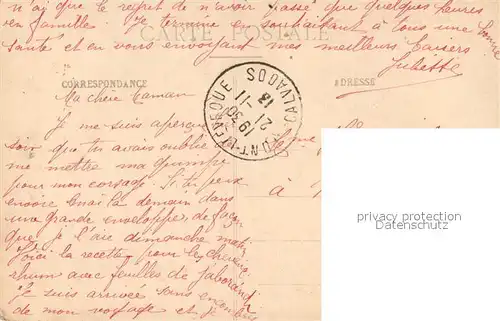 n'ai que le regret de n'avoir passé que quelques heures
en famille. Je termine en souhaitant à tous une bonne
CARTE POSTALE
santé et en vous envoyant mes meilleurs baisers
Juliette
CORRESPONDANCE
ADRESSE
PONT-L'EVEQUE
CALVADOS
13
21-11
1930
Ma chère Maman
Je me suis aperçue
soir que tu avais oublié
me mettre ma guimpe
pour mon corsage. Si tu peux
encore l'envoyer demain dans
une grande enveloppe de façon
que je l'aie dimanche matin
Voici la recette pour les cheveux
rhum avec feuilles de jaborandi
Je suis arrivée sans encombre
de mon voyage et je
à
privacy protection
Datenschutz